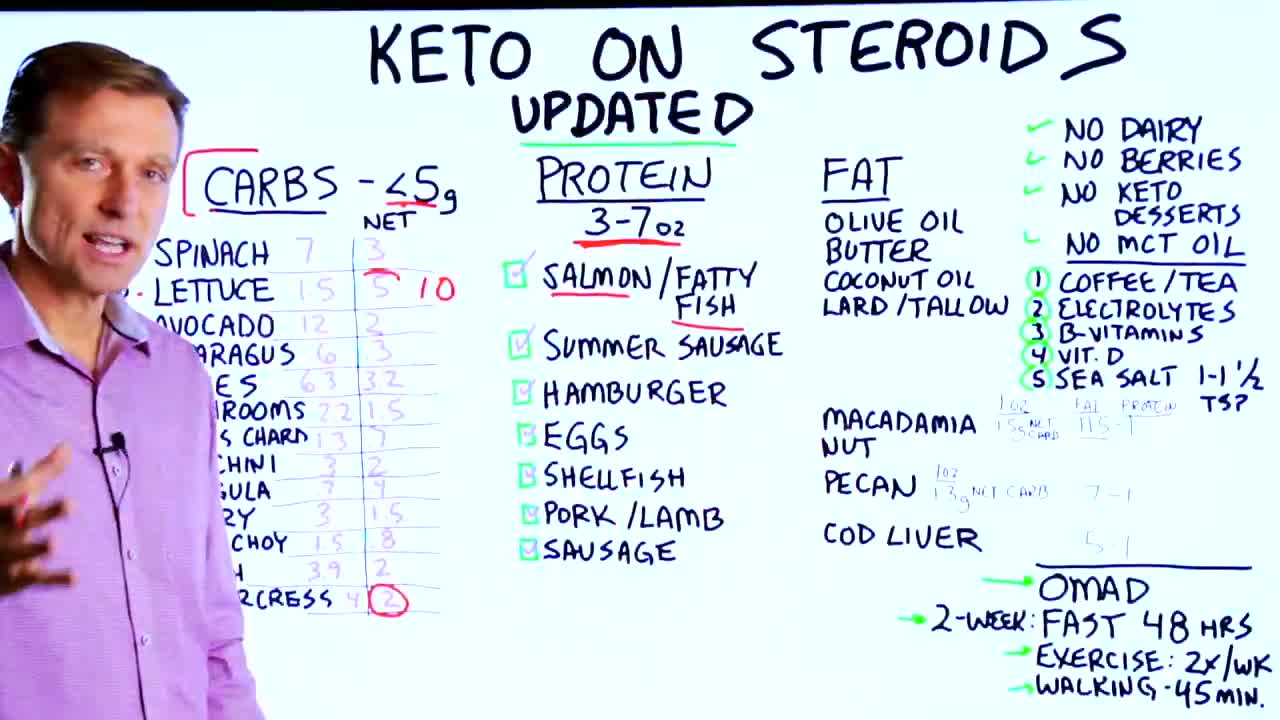 KETO ON STEROIDS
UPDATED
CARBS - <5g
NET
SPINACH 7 3
LETTUCE 1.5 5 10
AVOCADO 12 2
ARAGUS 6 .3
ES 63 3.2
ROOMS 22 1.5
S CHARD 13 7
CHINI 3 2
GULA .7 4
RY 3 1.5
CHOY 1.5 8
H 3.9 2
RCRESS 4 2
PROTEIN
3-7oz
SALMON/FATTY
FISH
SUMMER SAUSAGE
HAMBURGER
EGGS
SHELLFISH
PORK/LAMB
SAUSAGE
FAT
OLIVE OIL
BUTTER
COCONUT OIL
LARD/TALLOW
MACADAMIA
NUT
1oz FAT PROTEIN
1.5g NET CARB 11.5-1
PECAN 1oz
1.3g NET CARB 7-1
COD LIVER 5-1
NO DAIRY
NO BERRIES
NO KETO
DESSERTS
NO MCT OIL
1 COFFEE/TEA
2 ELECTROLYTES
3 B-VITAMINS
4 VIT. D
5 SEA SALT 1-1 1/2
TSP
OMAD
2-WEEK: FAST 48 HRS
EXERCISE: 2x/WK
WALKING-45MIN.